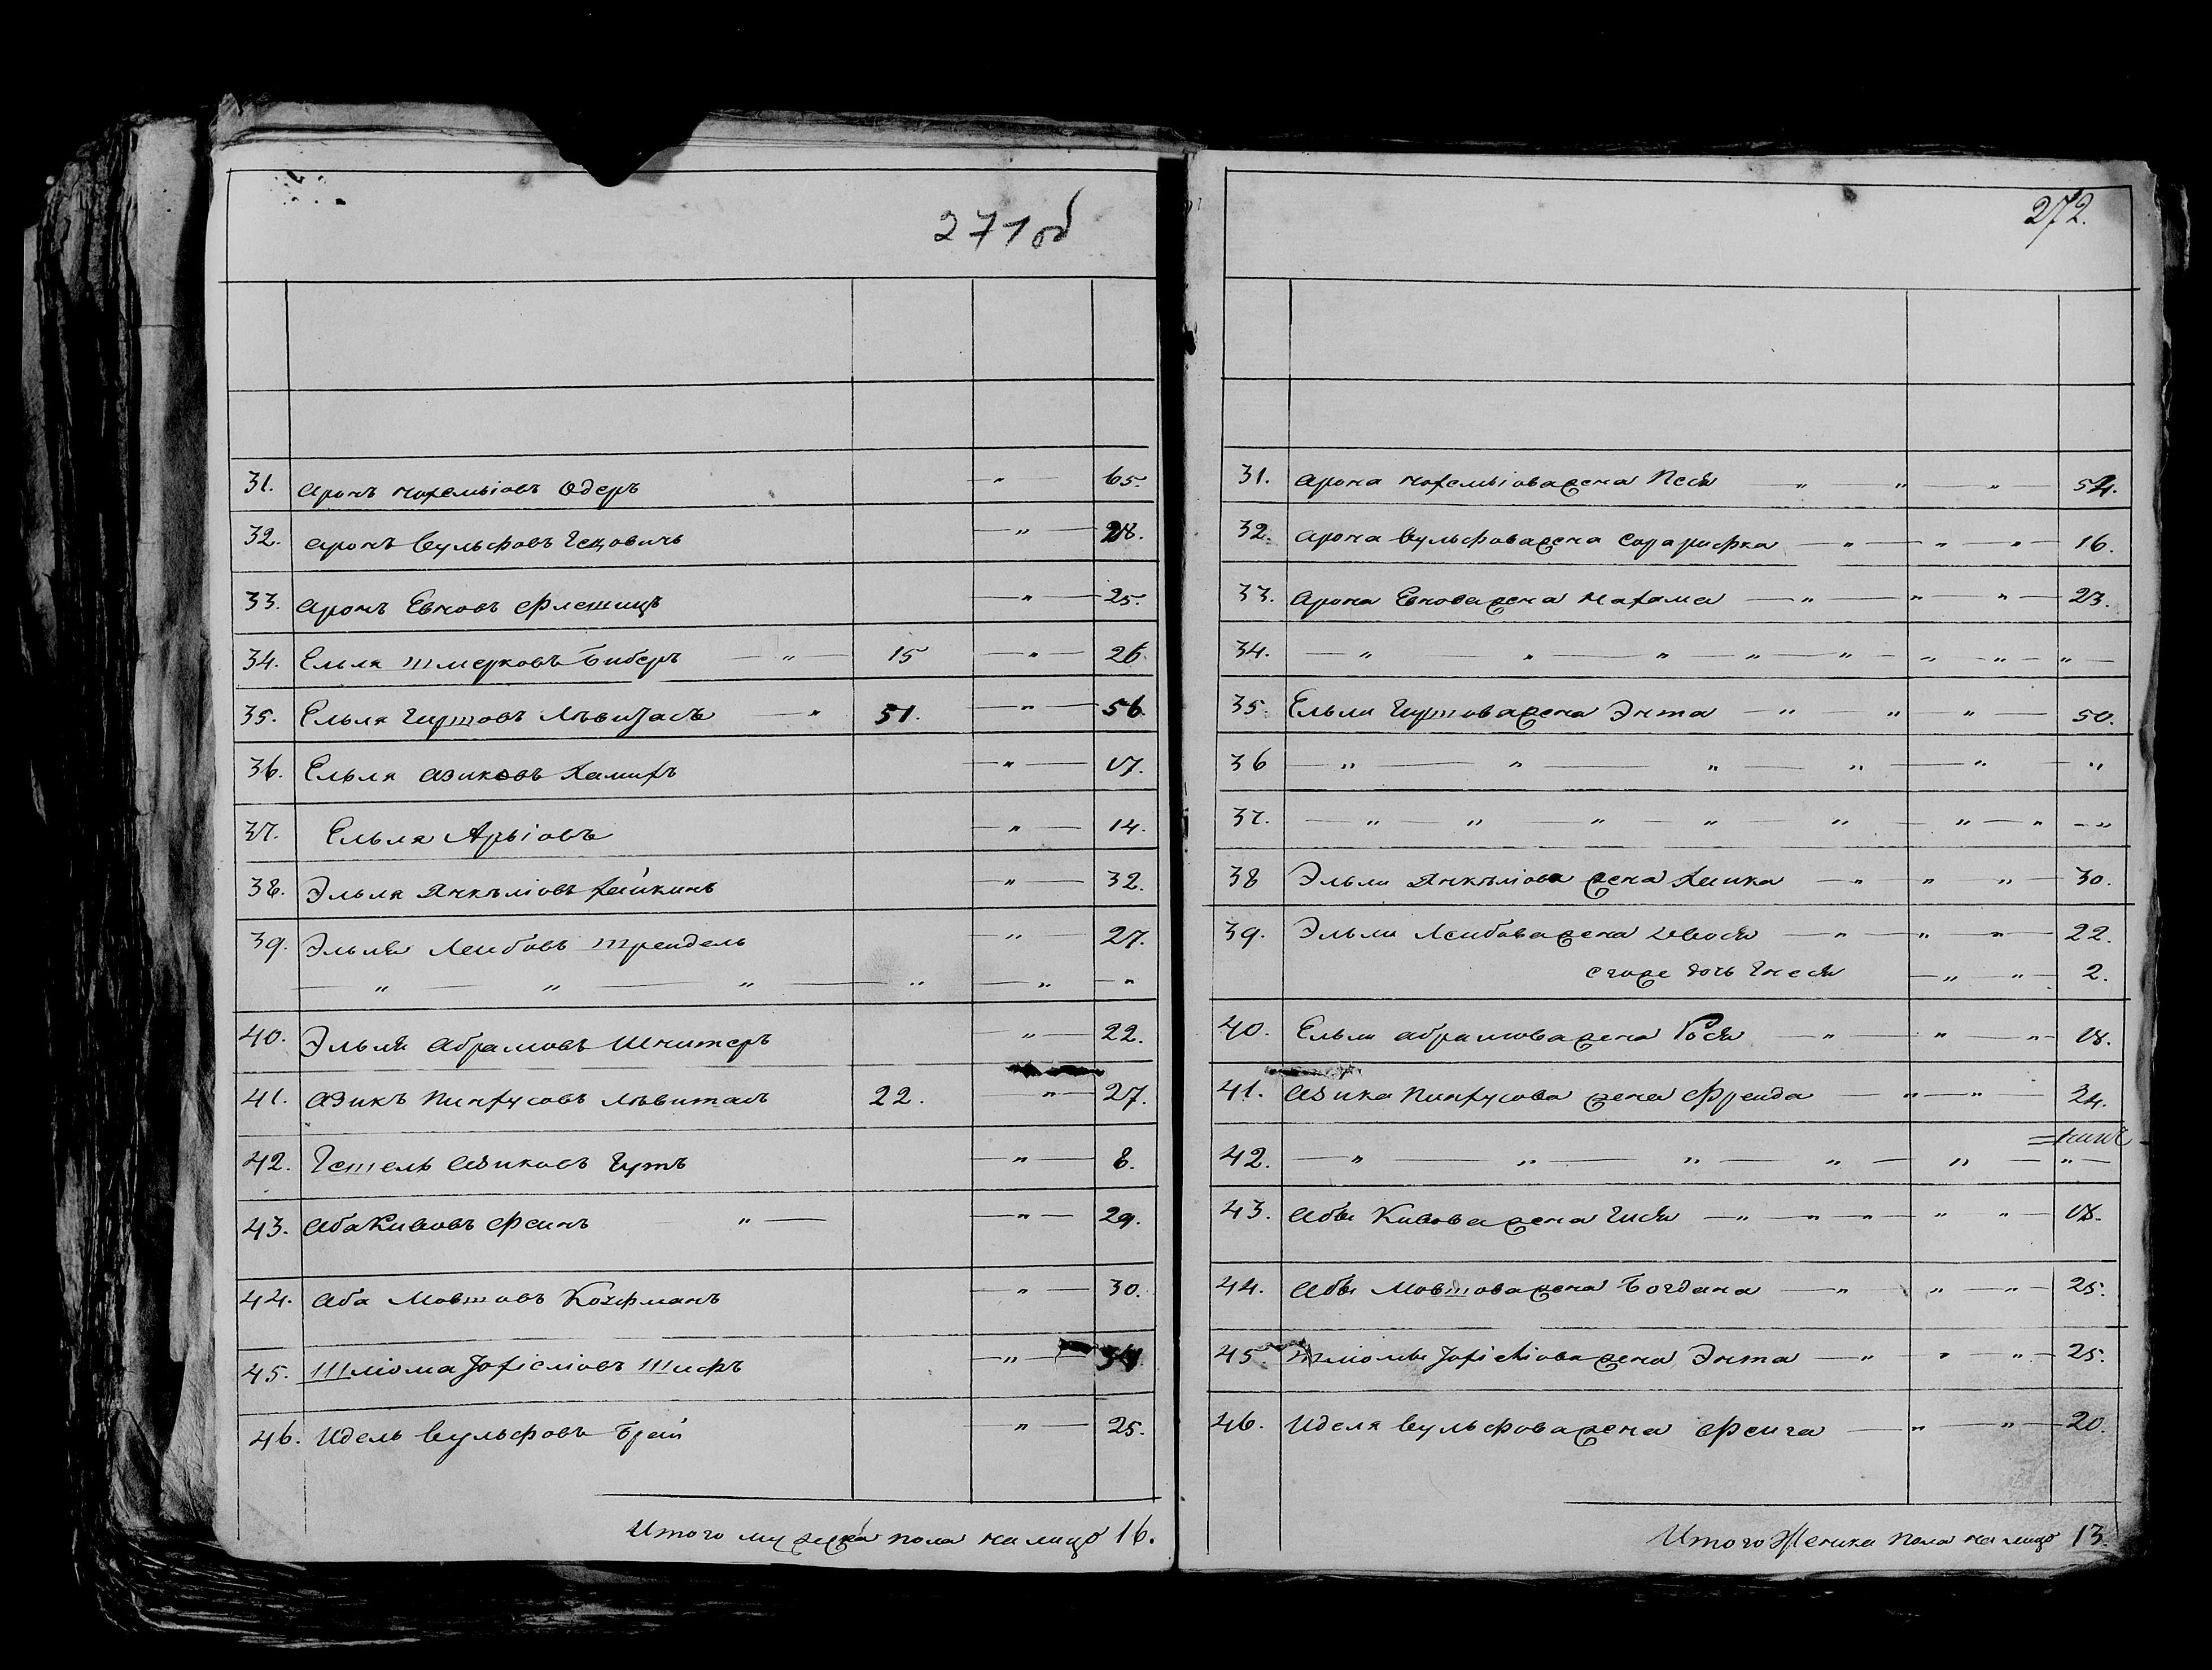 271об
31. Аронъ Нохемьіовъ Одеръ " 65.
32. Аронъ Вульфовъ Гецовичь " 28.
33. Аронъ Евновъ Флешицъ " 25.
34. Ельля Шмерковъ Биберъ " 15 " 26
35. Ельля Гиршовъ " 51. " 56
36. Ельля Азиковъ " 17.
37. Ельля Арьіовъ " 14.
38. Эльля Янкѣліовъ Хейкинъ " 32.
39. Эльля Лейбовъ Трейдель " 27.
" " " " " "
40. Эльля Абрамовъ Шнитеръ " 22.
41. Азикъ Пинхусовъ Лѣвиталъ 22. " 27.
42. Гешель Азиковъ Гутъ " 8.
43. Аба Кивовъ Феинъ " " 29.
44. Аба Мовшовъ Кочфманъ " 30.
45. Шліома Іохіеліовъ Шифъ " 54
46. Идель Вульфовъ Брай " 25.
Итого мужеска пола на лицо 16.
272.
31. Арона Нохемьіова жена Песя " " " 54.
32. Арона Вульфова жена Сорарифка " " " 16.
33. Арона Евнова жена Нахама " " " 23.
34. " " " " " " " "
35. Ельли Гиршова жена Энта " " " 50.
36 " " " " " "
37. " " " " " " " "
38 Эльли Янкѣліова жена Хаика " " " 30.
39. Эльли Леибова жена " " " 22.
с того же дочь Гнеся " " 2.
40. Ельли Абрамова жена Рося " " " 18.
41. Азика Пинхусова жена Фреида " " 24.
42. " " " " " "
43. Абы Кивова жена Гися " " " " " 18.
44. Абы Мовшова жена Богдана " " " 25.
45. Шліомы Іохіеліова жена Энта " " " 25.
46. Иделя Вульфова жена Феига " " 20.
Итого Женска пола на лицо 13.